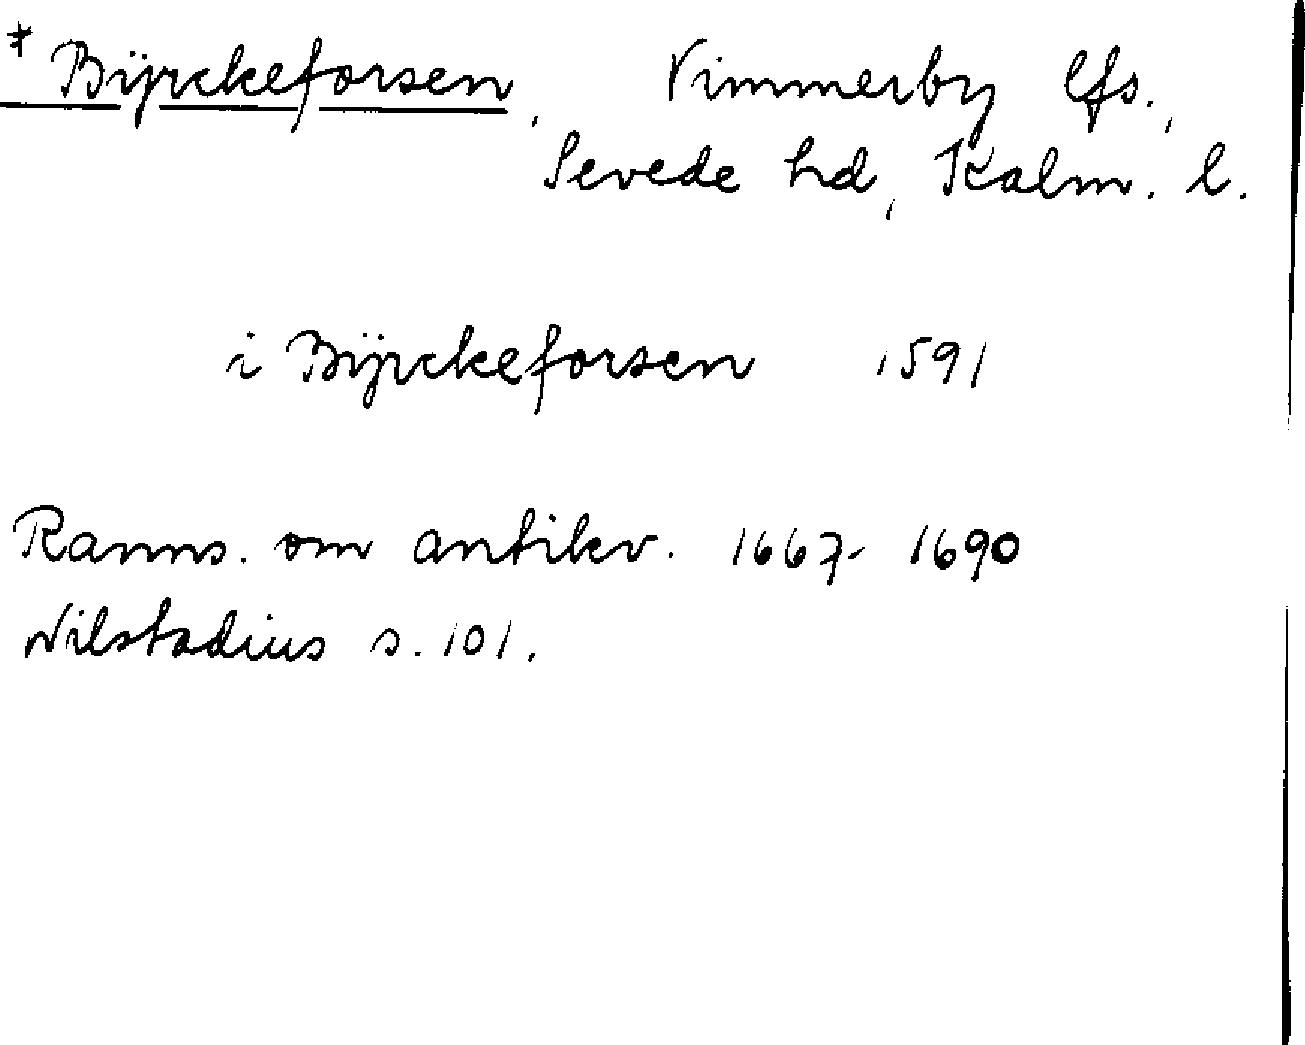 * Bÿrckeforsen, Vimmerby lfs.,
Sevede hd, Kalm. l.
i Bÿrckeforsen 1591
Ranns. om antikv. 1667-1690
Nilstadius s. 101.